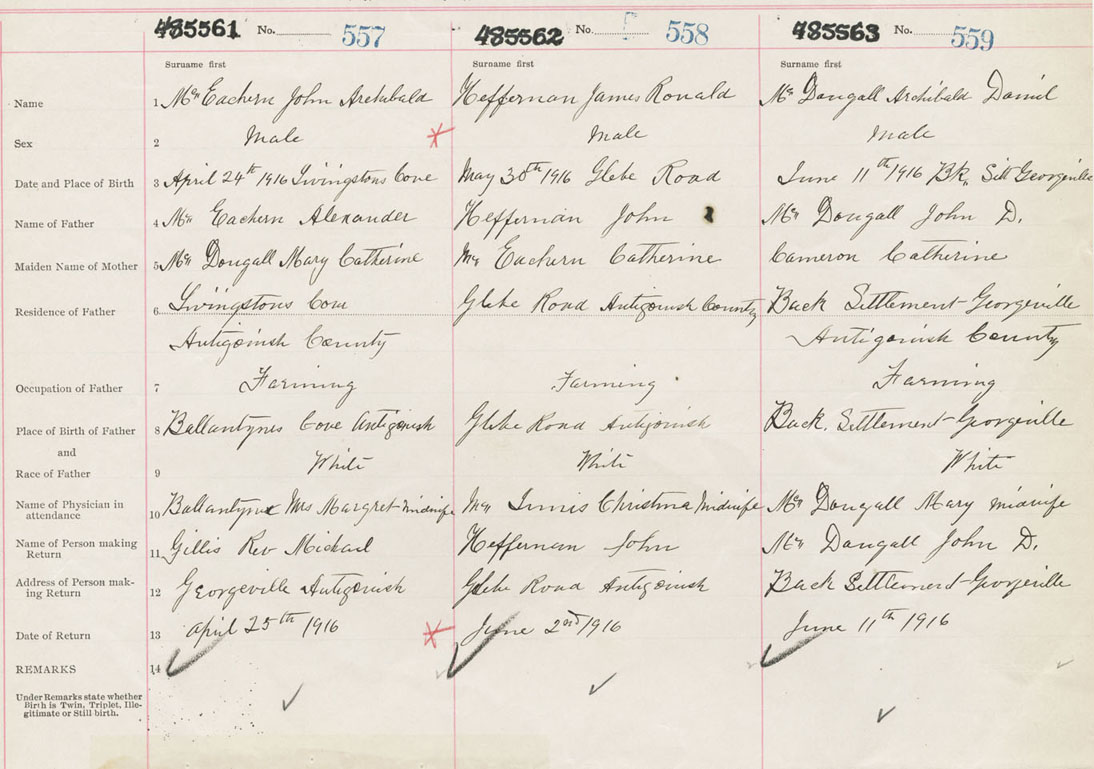 485561 No. 557 485562 No. 558 485563 No. 559
Surname first Surname first Surname first
Name 1 Mc Eachern John Archibald Heffernan James Ronald Mc Dougall Archibald Daniel
Sex 2 Male Male Male
Date and Place of Birth 3 April 24th 1916 Livingstons Cove May 30th 1916 Glebe Road June 11th 1916 Bk. Sett Georgeville
Name of Father 4 Mc Eachern Alexander Heffernan John Mc Dougall John D.
Maiden Name of Mother 5 Mc Dougall Mary Catherine Mc Eachern Catherine Cameron Catherine
Residence of Father 6 Livingstons Cove Glebe Road Antigonish County Back Settlement Georgeville
Antigonish County Antigonish County
Occupation of Father 7 Farming Farming Farming
Place of Birth of Father 8 Ballantynes Cove Antigonish Glebe Road Antigonish Back Settlement Georgeville
and
Race of Father 9 White White White
Name of Physician in
attendance 10 Ballantyne Mrs Margret midwife Mc Innis Christina midwife Mc Dougall Mary midwife
Name of Person making
Return 11 Gillis Rev Michael Heffernan John Mc Dougall John D.
Address of Person mak-
ing Return 12 Georgeville Antigonish Glebe Road Antigonish Back Settlement Georgeville
Date of Return 13 April 25th 1916 June 2nd 1916 June 11th 1916
REMARKS 14
Under Remarks state whether
Birth is Twin, Triplet, Ille-
gitimate or Still birth.